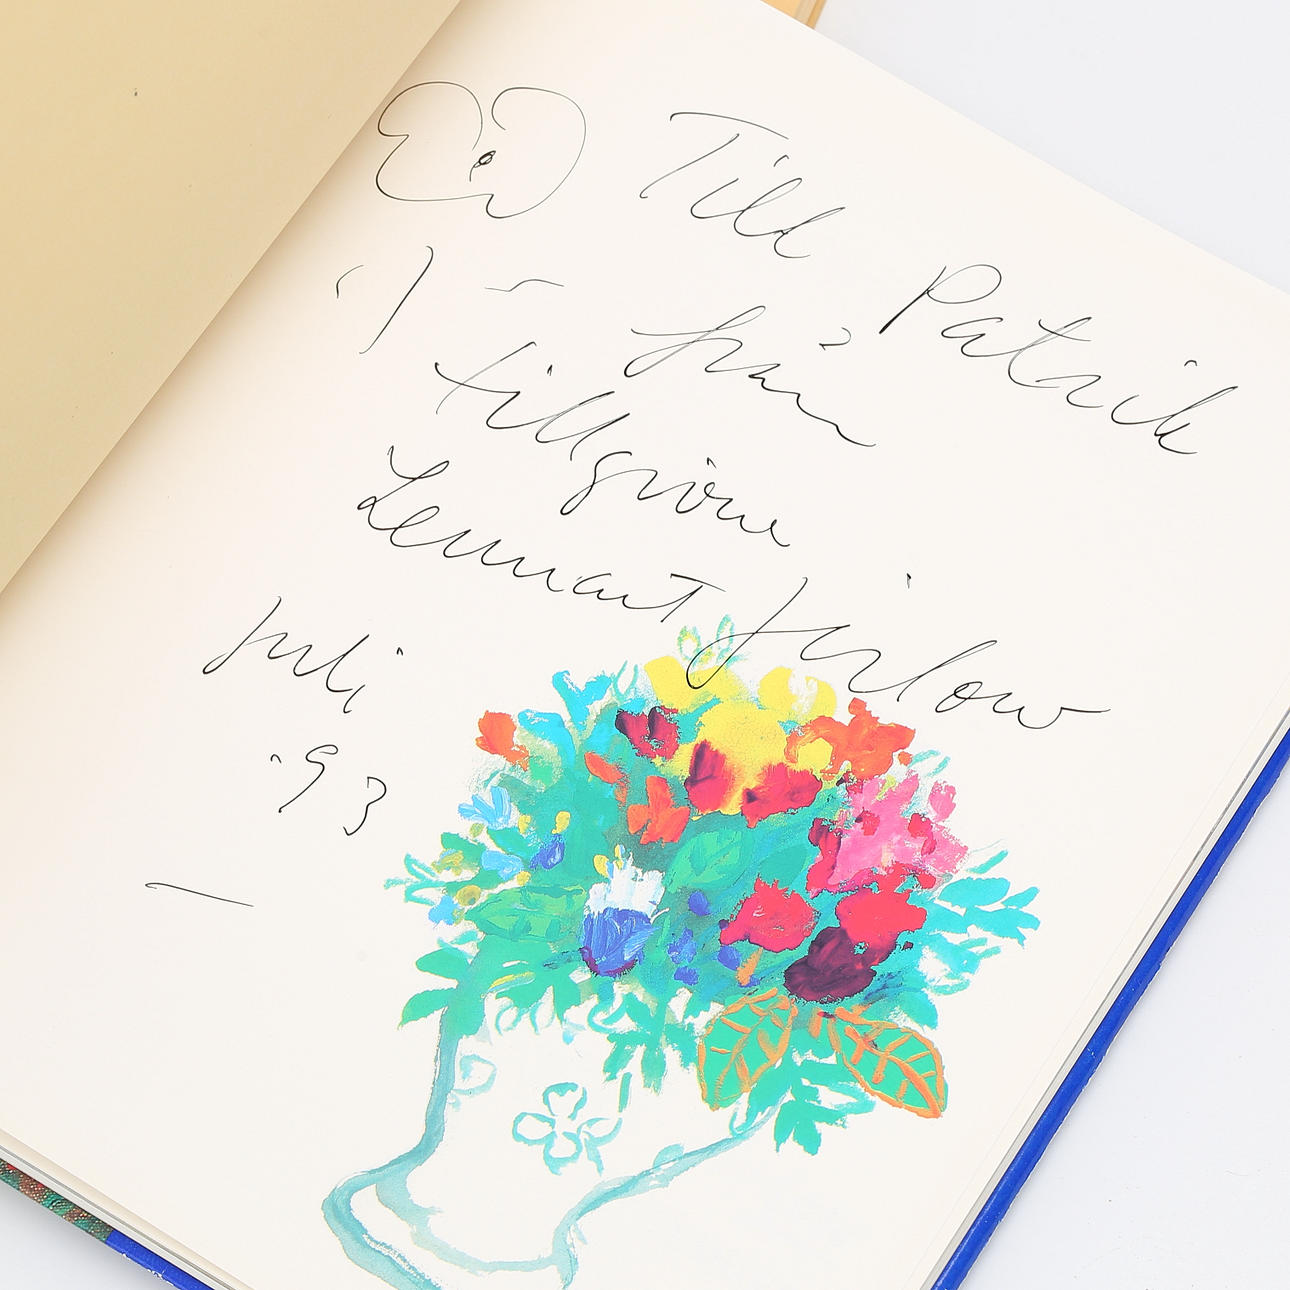 Till Patrik
från
tillgivne
Lennart Jirlow
juli
'93